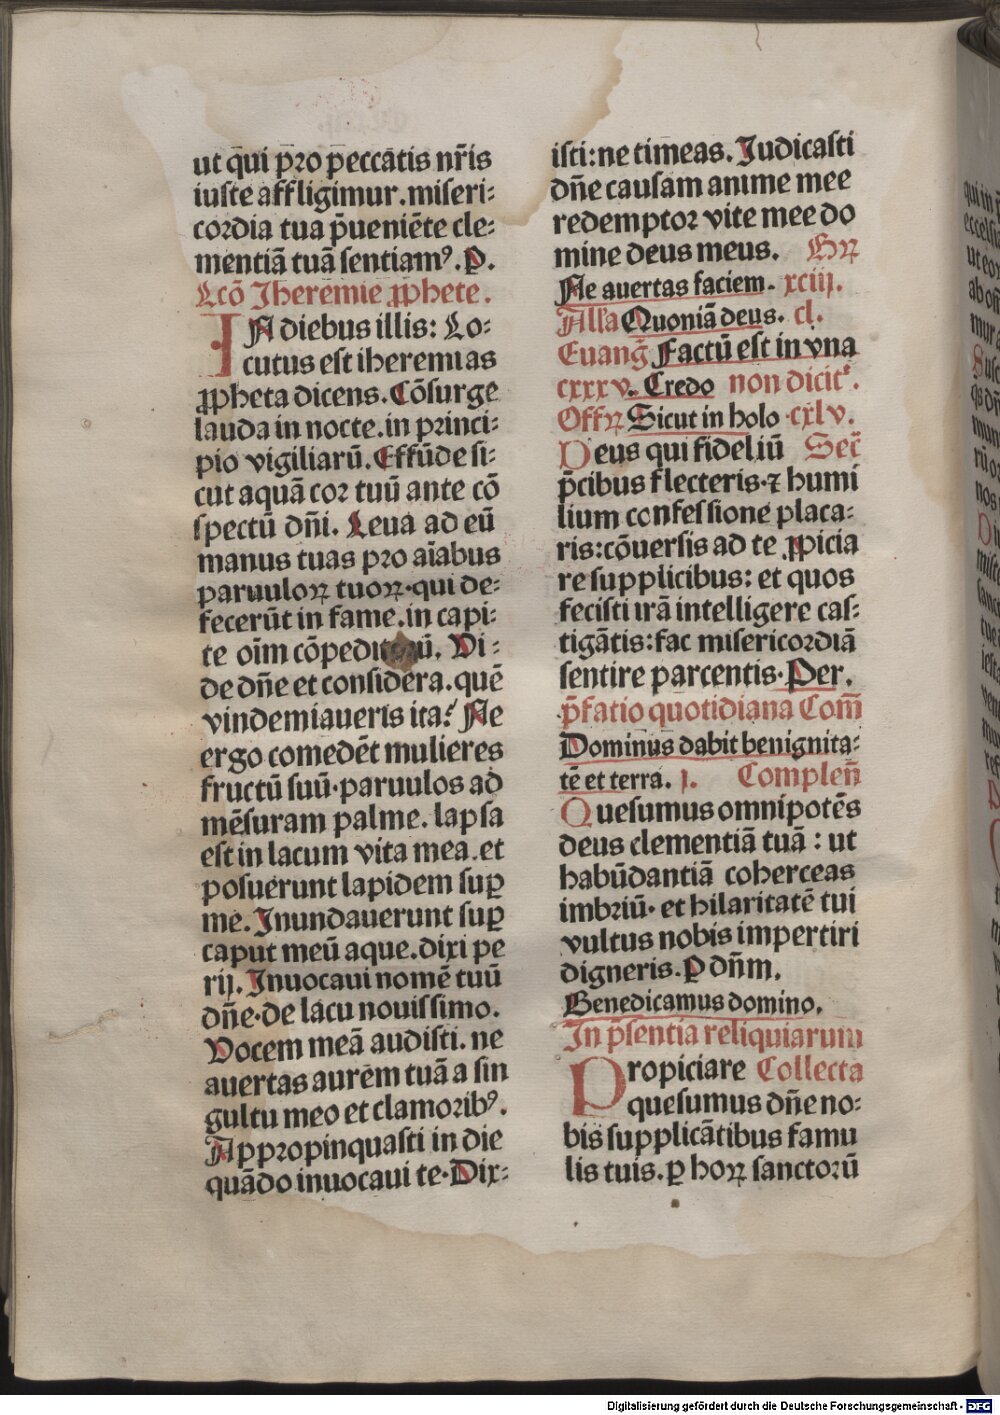 ut q̄ui pꝛo peccātis nr̄is
iuſte affligimur. miſeri⸗
coꝛdia tua p̄ueniēte cle⸗
mentiā tuā ſentiamꝰ. ꝑ.
Lcō Jheremie ꝓphete.
IN diebus illis: Lo⸗
cutus eſt iheremias
ꝓpheta dicens. Cōſurge
lauda in nocte. in princi⸗
pio vigiliarū. Effūde ſi⸗
cut aquā coꝛ tuū ante cō
ſpectū dn̄i. Leua ad eū
manus tuas pro aīabus
paruuloꝝ tuoꝝ. qui de⸗
fecerūt in fame. in capi⸗
te oīm cōpeditoꝛū. Vi⸗
de dn̄e et conſidera. quē
vindemiaueris ita. Ne
ergo comedēt mulieres
fructū ſuū. paruulos ad
mēſuram palme. lapſa
eſt in lacum vita mea. et
poſuerunt lapidem ſuꝑ
me. Inundauerunt ſuꝑ
caput meū aque. dixi pe
rij. Inuocaui nomē tuū
dn̄e. de lacu nouiſſimo.
Vocem meā audiſti. ne
auertas aurem tuā a ſin
gultu meo et clamoꝛibꝰ.
Appꝛopinquaſti in die
quādo inuocaui te. Dix⸗
iſti: ne timeas. Judicaſti
dn̄e cauſam anime mee
redemptoꝛ vite mee do
mine deus meus. Gꝝ
Ne auertas faciem. xciij.
Alla Quoniā deus. cl.
Euanḡ Factū eſt in vna
cxxxv. Credo non dicit᷑.
Offꝝ Sicut in holo cxlv.
Deus qui fidelium̄ Sec̄
p̄cibus flecteris. ⁊ humi
lium confeſſione placa⸗
ris: cōuerſis ad te ꝓpicia
re ſupplicibus: et quos
feciſti irā intelligere caſ⸗
tigātis: fac miſericoꝛdiā
ſentire parcentis. Per.
p̄fatio quotidiana Com̄
Dominus dabit benignita⸗
tē et terra. j. Complen̄
Queſumus omnipotēs
deus clementiā tuā: ut
habūdantiā coherceas
imbriū. et hilaritatē tui
vultus nobis impertiri
digneris. ꝑ dn̄m.
Benedicamus domino.
In p̄ſentia reliquiarum
Propiciare Collecta
queſumus dn̄e no⸗
bis ſupplicātibus famu
lis tuis. ꝑ hoꝝ ſanctoꝛū
Digitalisierung gefördert durch die Deutsche Forschungsgemeinschaft - DFG